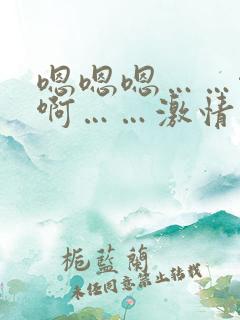 嗯嗯嗯……
啊……激情
栀蓝兰
未经同意禁止转载